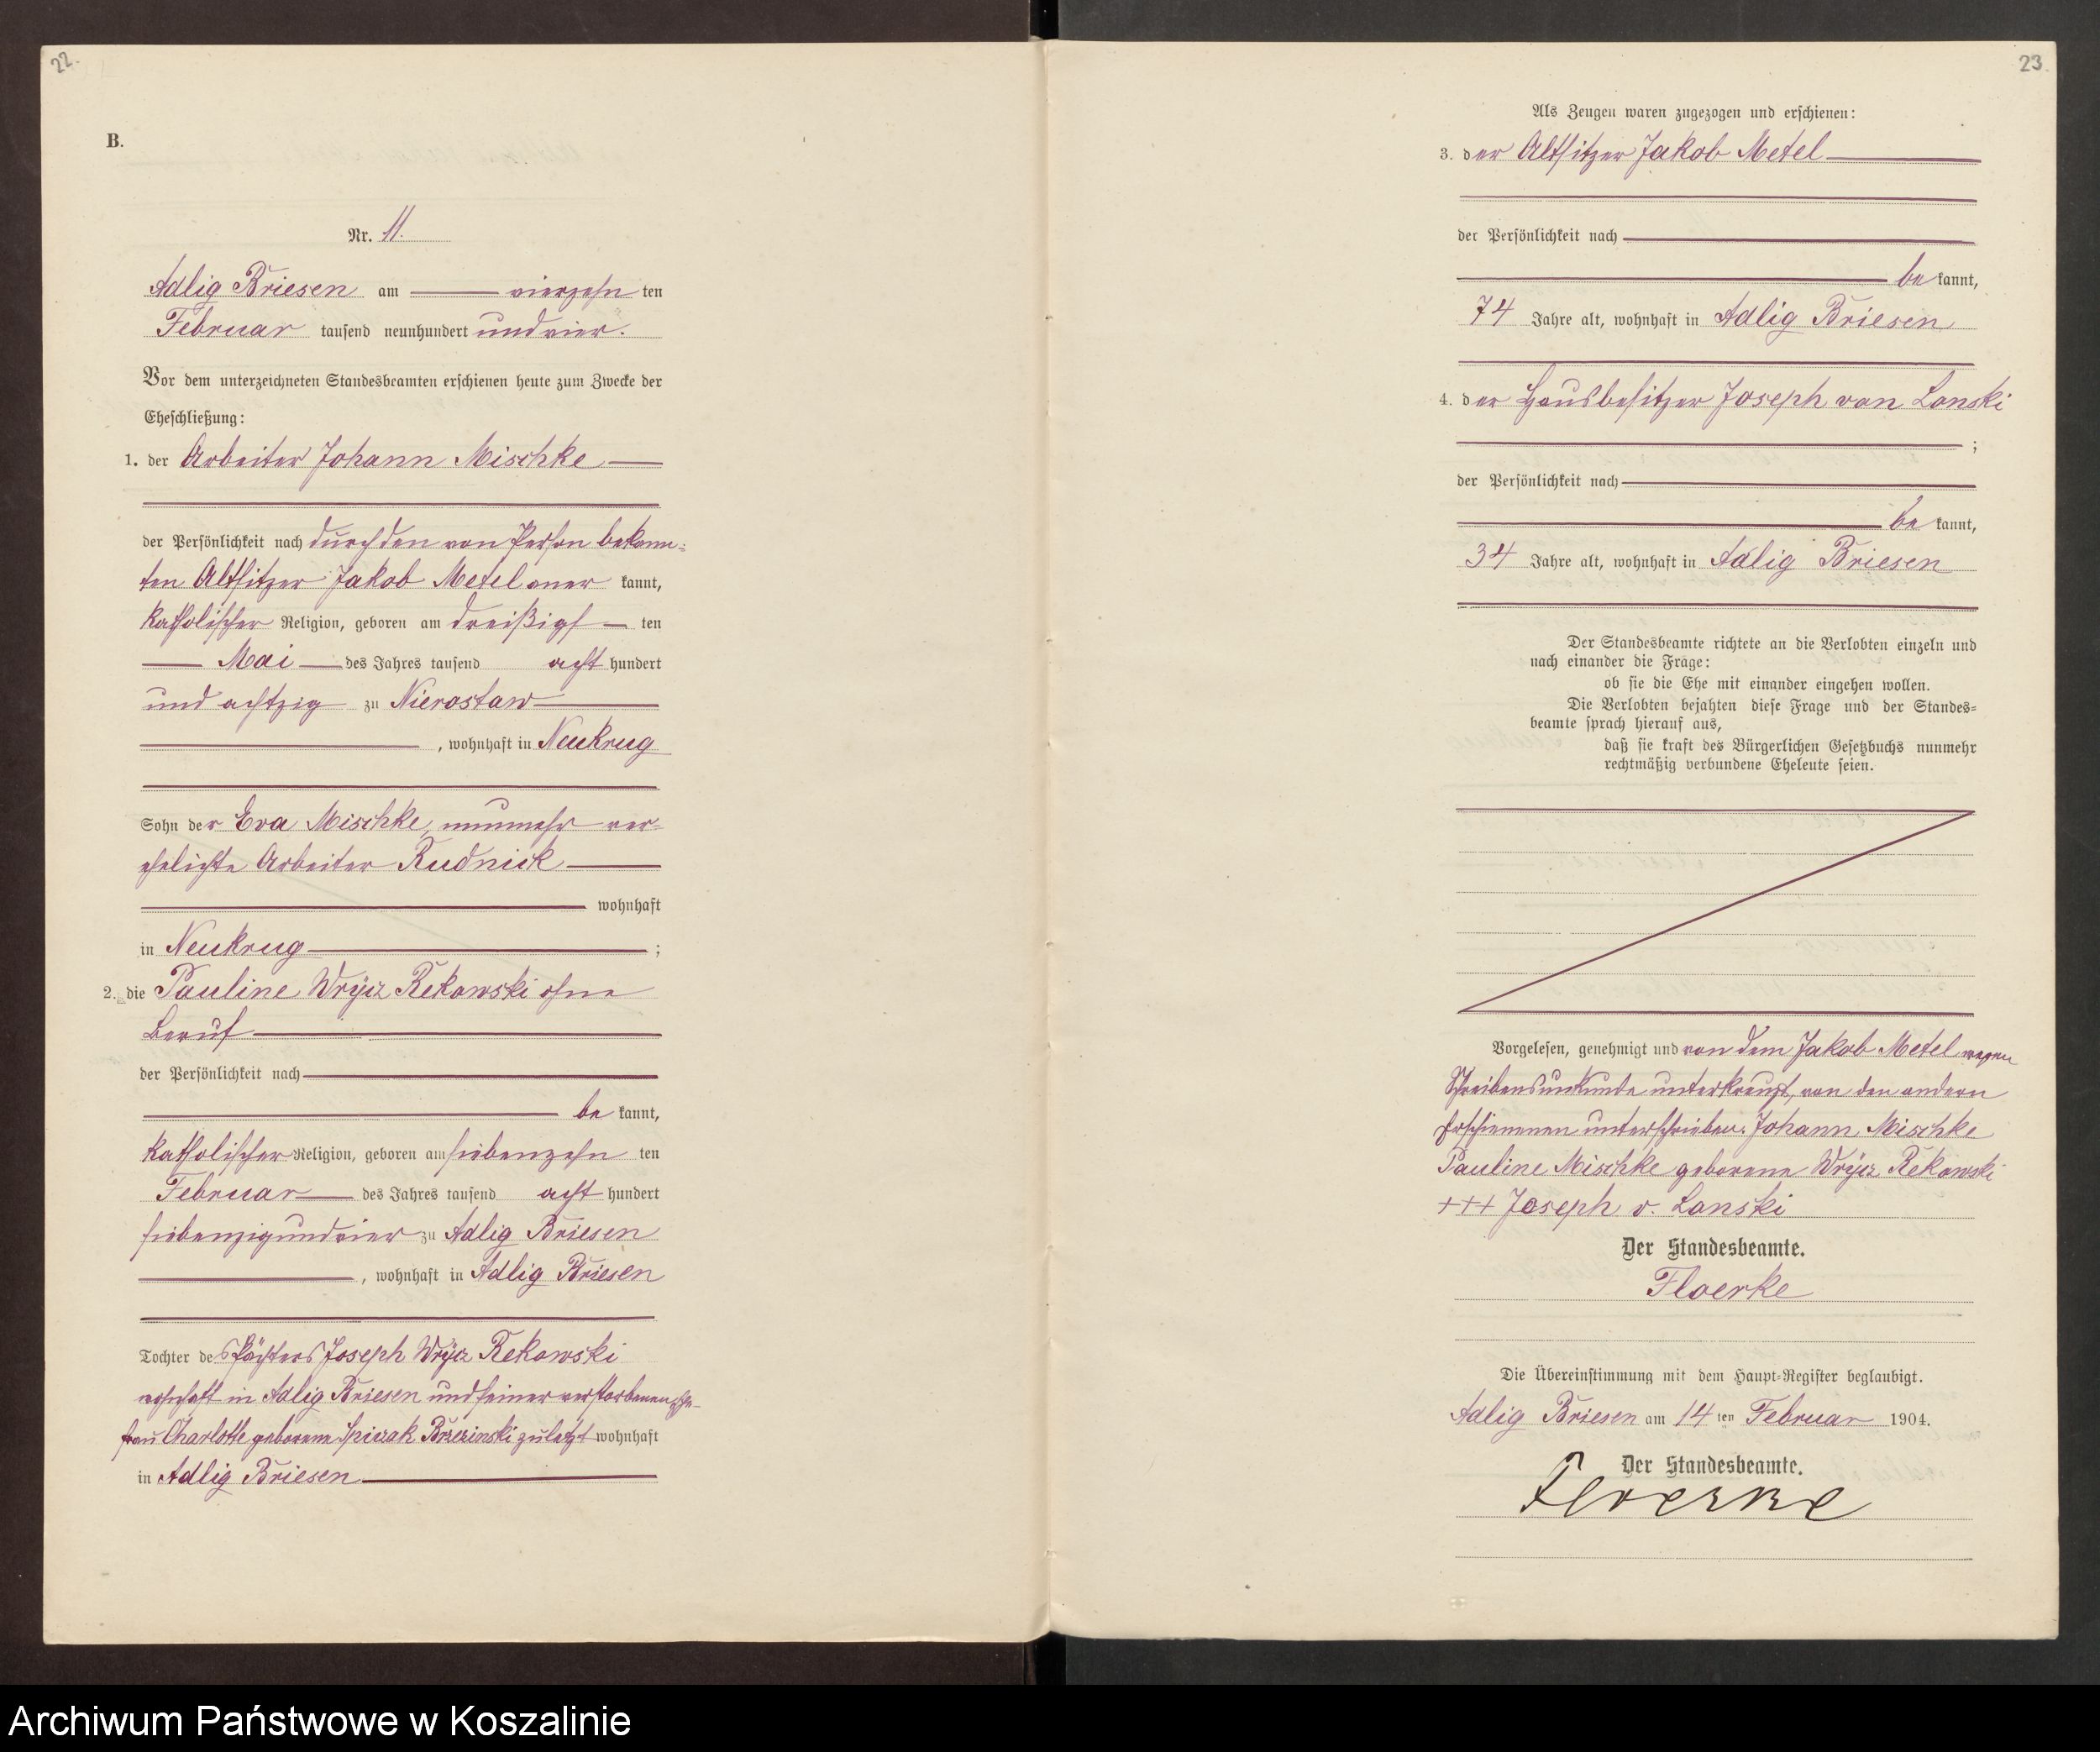 22.
B.
Nr. 11.
Adlig Briesen am vierzehn ten
Februar tausend neunhundert und vier.
Vor dem unterzeichneten Standesbeamten erschienen heute zum Zwecke der
Eheschließung:
1. der Arbeiter Johann Mischke
der Persönlichkeit nach durch den von Person bekann-
ten Altsitzer Jakob Metel aner kannt,
katholischer Religion, geboren am dreißigs ten
Mai des Jahres tausend acht hundert
und achtzig zu Nierostaw
, wohnhaft in Neukrug
Sohn der Eva Mischke, nunmehr ver-
ehelichte Arbeiter Rudnick
wohnhaft
in Neukrug ;
2. die Pauline Wrÿcz Rekowski ohne
Beruf
der Persönlichkeit nach
be kannt,
katholischer Religion, geboren am siebenzehn ten
Februar des Jahres tausend acht hundert
siebenzigundvier zu Adlig Briesen
, wohnhaft in Adlig Briesen
Tochter des Pächters Joseph Wrÿcz Rekowski
wohnhaft in Adlig Briesen und seiner verstorbenen Ehe-
frau Charlotte geborene Spiczak Brzezinski zuletzt wohnhaft
in Adlig Briesen
23.
Als Zeugen waren zugezogen und erschienen:
3. der Altsitzer Jakob Metel
der Persönlichkeit nach
be kannt,
74 Jahre alt, wohnhaft in Adlig Briesen
4. der Hausbesitzer Joseph von Lonski
;
der Persönlichkeit nach
be kannt,
34 Jahre alt, wohnhaft in Adlig Briesen
Der Standesbeamte richtete an die Verlobten einzeln und
nach einander die Frage:
ob sie die Ehe mit einander eingehen wollen.
Die Verlobten bejahten diese Frage und der Standes-
beamte sprach hierauf aus,
daß sie kraft des Bürgerlichen Gesetzbuchs nunmehr
rechtmäßig verbundene Eheleute seien.
Vorgelesen, genehmigt und von dem Jakob Metel wegen
Schreibensunkunde unterkreuzt, von den andern
Erschienenen unterschrieben. Johann Mischke
Pauline Mischke geborene Wrÿcz Rekowski
+++ Joseph v. Lonski
Der Standesbeamte.
Floerke
Die Übereinstimmung mit dem Haupt-Register beglaubigt.
Adlig Briesen am 14 ten Februar 1904.
Der Standesbeamte.
Floerke
Archiwum Państwowe w Koszalinie